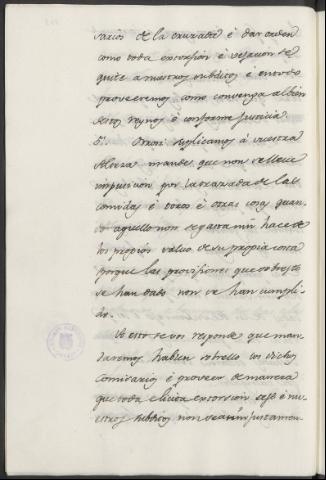 sarios de la cruzada é dar orden
como toda estorsion é vejacion se
quite a nuestros subditos é en todo
proveeremos como convenga al bien
destos reynos é conforme justicia
5ª. Otrosi suplicamos á vuestra
Alteza mande que non se lleve
imposicion por la cruzada de las
comidas é toros é otras cosas quan
do aquello non se gasta nin hace de
los propios salvo de su propia costa
porque las provisiones que sobresto
se han dado non se han cumpli
do.
A esto se vos responde que man
daremos hablen sobrello los dichos
Comisarios é proveer de manera
que toda ilicita extorsion cese é nu
estros subditos non sean injustamen